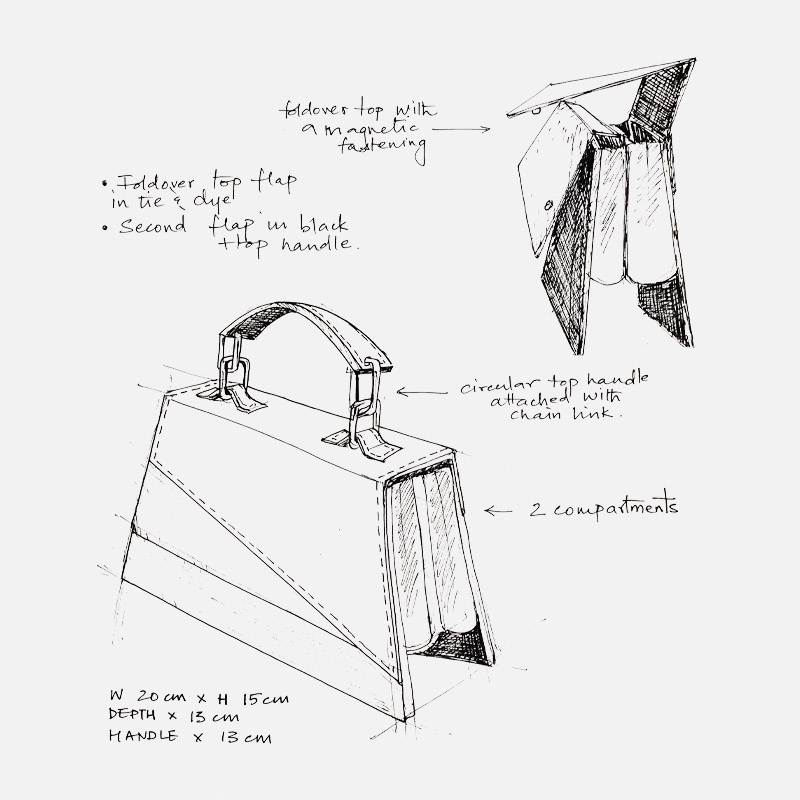 foldover top with
a magnetic
fastening
• Foldover top flap
in tie & dye
• Second flap in black
+ top handle.
circular top handle
attached with
chain link.
2 compartments
W 20 cm x H 15 cm
DEPTH x 13 cm
HANDLE x 13 cm